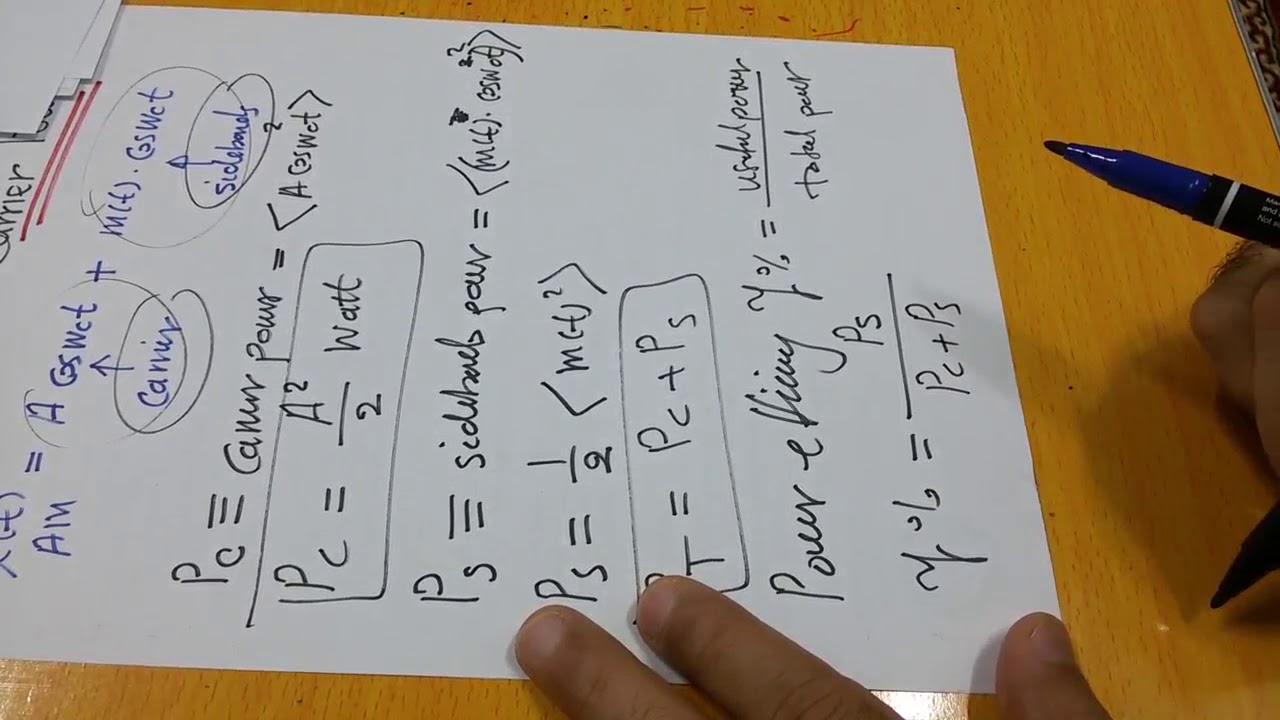 Carrier
X(t) = A cosWct + m(t). cosWct
AM
Carrier sidebands
Pc ≡ Carrier power = <A cosWct>²
Pc = A²/2 Watt
Ps ≡ sidebands power = <m(t)². cosWct²>
Ps = 1/2 <m(t)²>
PT = Pc + Ps
Power efficiency η% = useful power / total power
η% = Ps / Pc + Ps